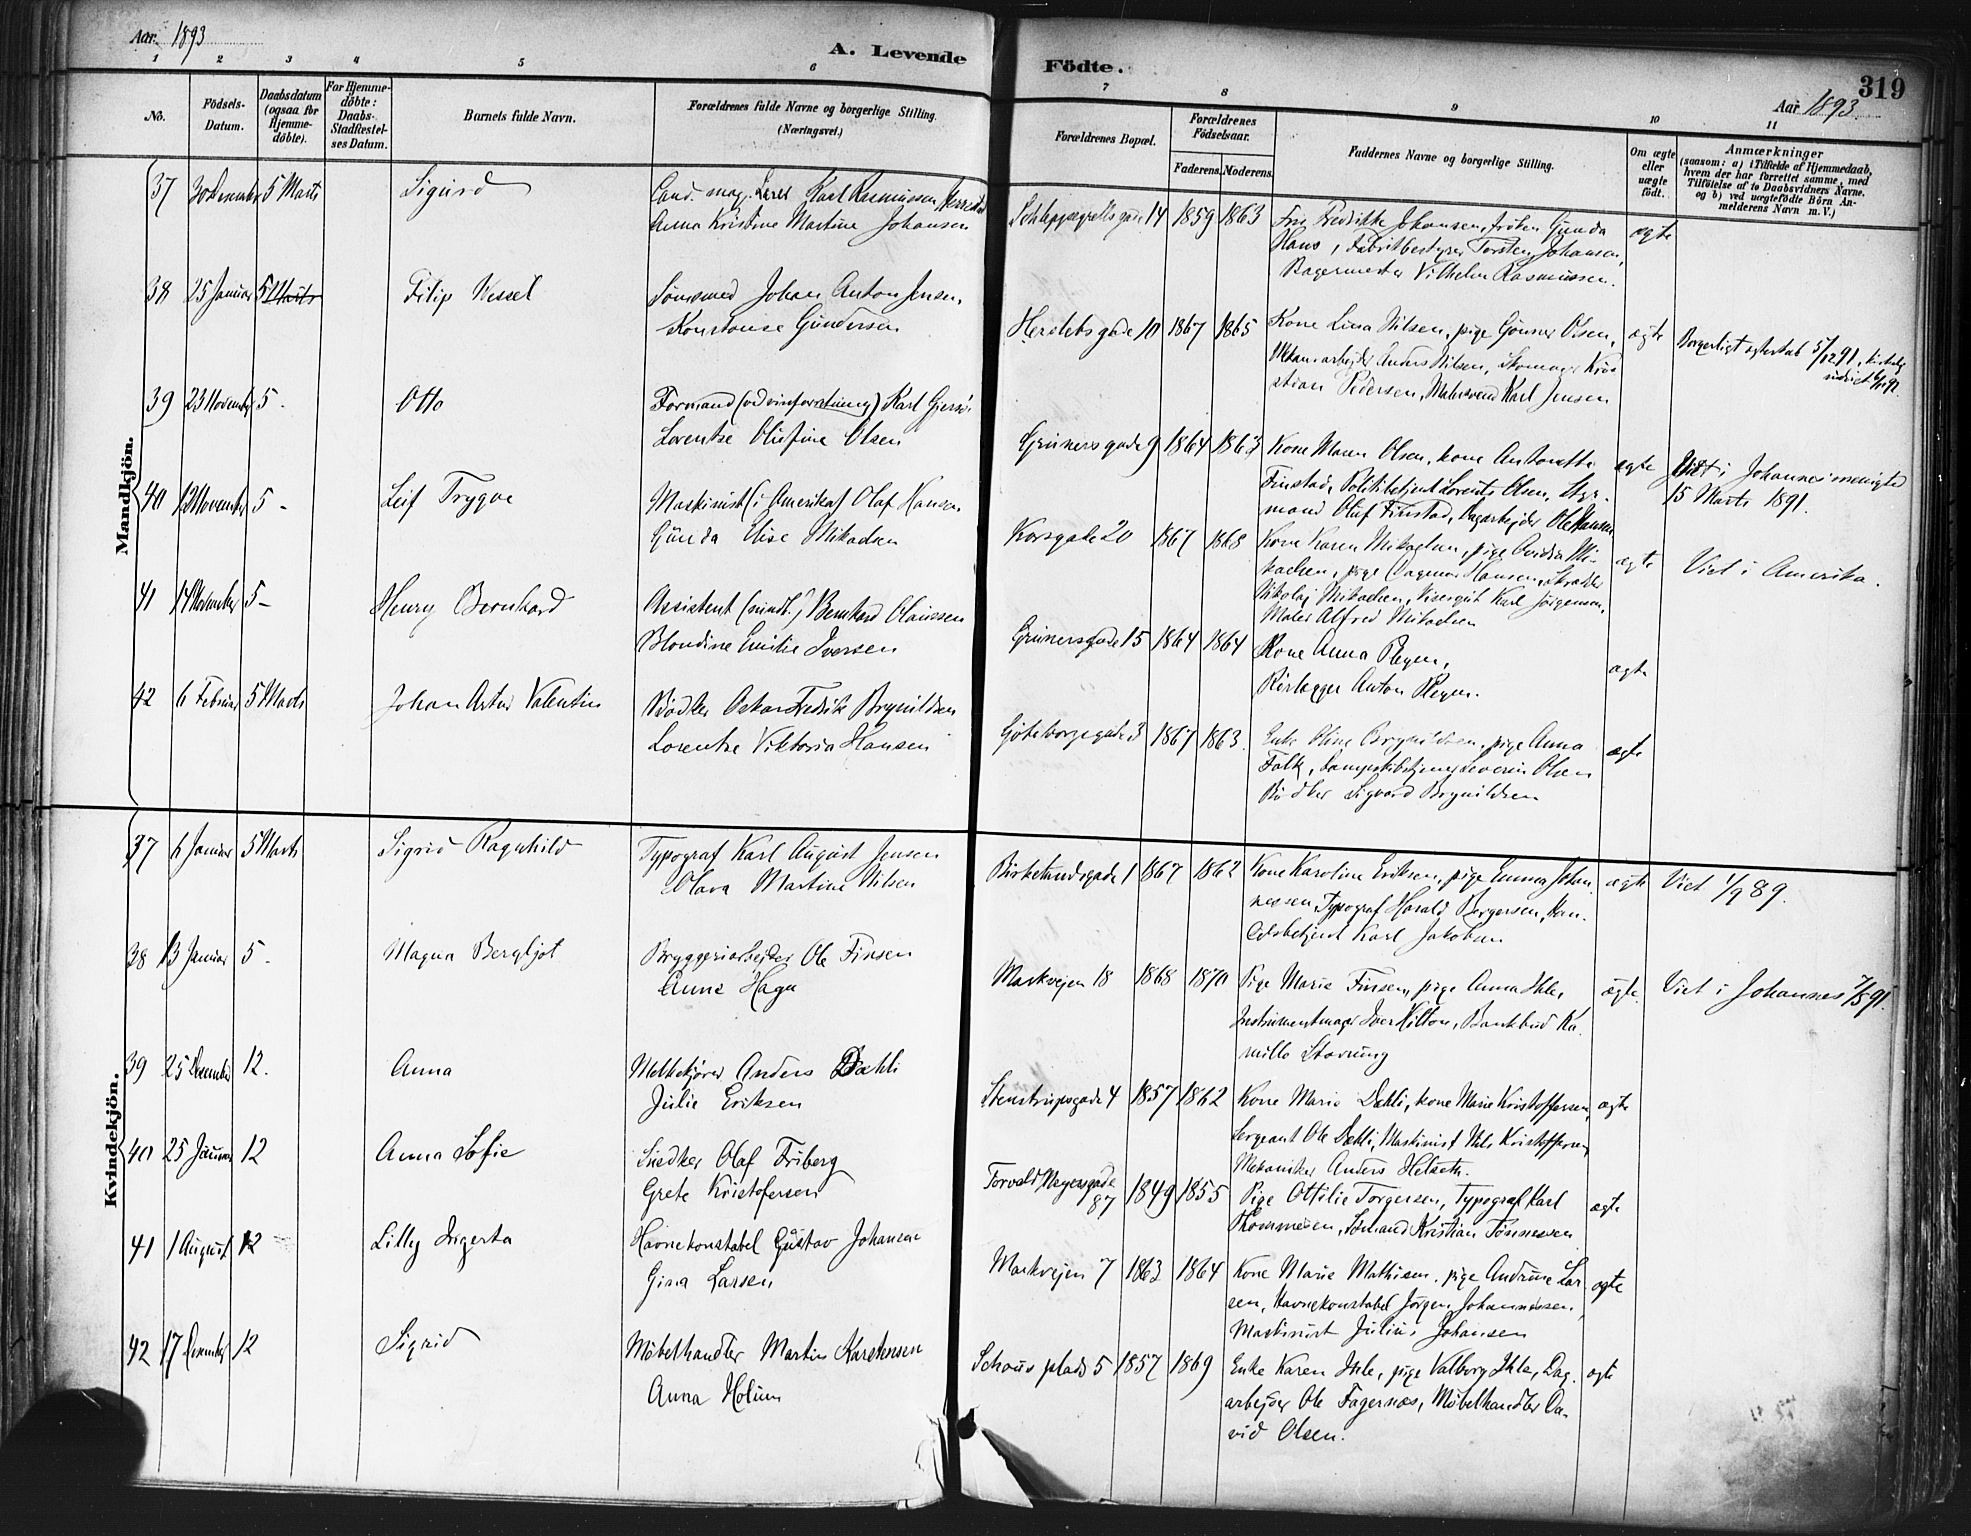 Aar 1893
A. Levende Födte.
319
Aar 1893.
1 2 3 4 5 6 7 8 9 10 11
No.
Födsels-Datum.
Daabsdatum (ogsaa for Hjemmedöbte).
For Hjemmedöbte: Daabs-Stadfestelses Datum.
Barnets fulde Navn.
Forældrenes fulde Navne og borgerlige Stilling. (Næringsvei.)
Forældrenes Bopæl.
Forældrenes Födselsaar.
Faderens. Moderens.
Faddernes Navne og borgerlige Stilling.
Om ægte eller uægte födt.
Anmærkninger (saasom: a) i Tilfælde af Hjemmedaab, hvem der har forrettet samme, med Tilföielse af to Daabsvidners Navne, og b) ved uægtefödte Börn Anmelderens Navn m. V.)
Mandkjön.
37 30 December 5 Marts Sigurd
Cand. mag. Karl Rasmussen
Anna Kristine Martine Johansen
Schleppegrellsgade 14 1859 1863
Fru Fredrikke Johansen, fröken Gunda
Hans, Fabrikbestyrer Torsten Johansen,
Bagermester Vilhelm Rasmussen.
ægte
38 25 Januar 5 Marts Filip Wessel
Johan Anton Jensen,
Konstanse Gundersen
Herslebsgade 10 1867 1865
Kone Lina Nilsen, pige Gunner Olsen,
Mekan.arbejder Anders Nilsen, Skomager Kri-
stian Pedersen, Malersvend Karl Jensen
ægte
Borgerligt ægteskab 5/12 91,
39 23 November 5. Otto
Formand Karl
Lorentze Oliefine Olsen
Grünersgade 9 1864 1863
Kone Maren Olsen, kone Antonette
Finstad, Politibetjent Lorents Olsen, Styr-
mand Oluf Finstad, Dagarbejder Ole Hansen
ægte
Viet i Johannes menighed
15 Marts 1891.
40 12 November 5 - Leif Trygve
Maskinist (i Amerika) Olaf Hansen
Gunda Elise Mikaelsen
Korsgade 20 1867 1868
Kone Karen Mikaelsen, pige Ovidia Mi-
kaelsen, pige Dagmar Hansen, Skrædder
Nikolaj Mikaelsen, Visergut Karl Jörgensen,
Maler Alfred Mikaelsen
ægte
Viet i Amerika.
41 14 November 5 - Henry Bernhard
Assistent Bernhard Claussen
Blondine Emilie Iversen
Grünersgade 15 1864 1864
Kone Anna Pleyen,
Rörlægger Anton Pleyen.
ægte
42 6 Februar 5 Marts Johan Artur Valentin
Bödker Oskar Fredrik Brynildsen
Lorentze Viktoria Hansen
Göteborggade 3 1867 1863.
Enke Oline Brynildsen, pige Anna
Falk, Severin Olsen
Bödker Sigvard Brynildsen
ægte
Kvindekjön.
37 6 Januar 5 Marts Sigrid Ragnhild
Typograf Karl August Jensen
Olava Martine Nilsen
Birkelundsgade 1 1867 1862
Kone Karoline Eriksen, pige Emma Johan-
nessen, Typograf Harald Bergersen, Han-
delsbetjent Karl Jakobsen
ægte
Viet 1/9 89.
38 13 Januar 5 - Magna Bergljot
Bryggeriarbejder Ole Finsen
Anne Haga
Markvejen 18 1868 1870
Pige Marie Finsen, pige Anna Ihle,
Instrumentmager Iver Hilton, Bankbud Ka-
millo Stavnung
ægte.
Viet i Johannes 7/5 91.
39 25 December 12. Anna
Melkekjörer Anders Dæhli
Julie Eriksen
Stenstrupsgade 4 1857 1862
Kone Marie Dæhli, kone Marie Kristoffersen,
Sergeant Ole Dæhli, Maskinist Nils Kristoffersen,
Mekaniker Anders Helseth.
ægte
40 25 Januar 12 Anna Sofie
Snedker Olaf Friberg
Grete Kristofersen
Torvald Meyersgade 87 1849 1855
Pige Ottilie Torgersen, Typograf Karl
Thommesen, Sömand Kristian Tönnessen
ægte
41 1 August 12 Lilly Ingerta
Havnekonstabel Gustav Johansen
Gina Larsen
Markvejen 7 1863 1864
Kone Marie Mathisen, pige Andrine Lar-
sen, Havnekonstabel Jörgen Johannessen,
Maskinist Julius Johansen
ægte
42 17 December 12 Sigrid
Möbelhandler Martin Karstensen
Anna Holum
Schous plads 5 1857 1869
Enke Karen Ihle, pige Valborg Ihle, Dag-
arbejder Ole Fagernæs, Möbelhandler Da-
vid Olsen.
ægte